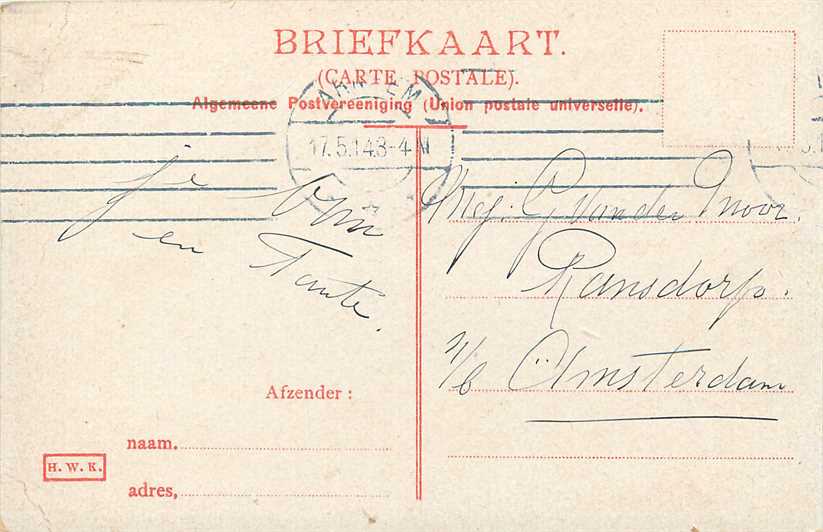 BRIEFKAART.
(CARTE POSTALE).
Algemeene Postvereeniging (Union postale universelle).
ARNHEM
17.5.14 3-4 N
je Oom
en
Tante.
Mej. G. van der Moor.
Ransdorp.
n/b Amsterdam
Afzender :
naam.
H. W. K.
adres,